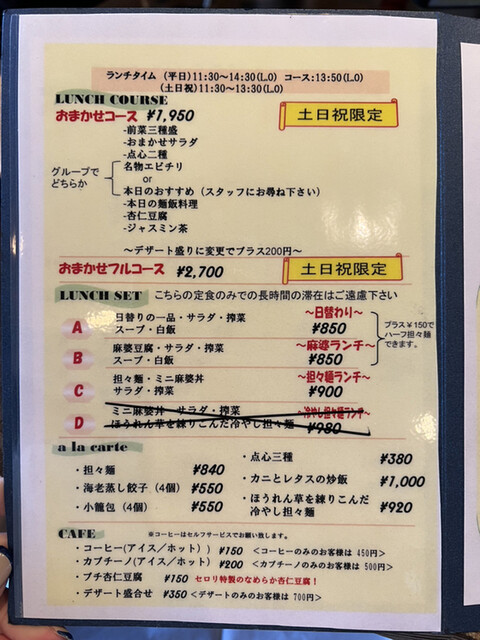 ランチタイム (平日)11:30〜14:30(L.O) コース:13:50(L.O)
(土日祝)11:30〜13:30(L.O)
LUNCH COURSE
おまかせコース ¥1,950
土日祝限定
-前菜三種盛
-おまかせサラダ
-点心二種
グループで
どちらか
名物エビチリ
or
本日のおすすめ(スタッフにお尋ね下さい)
-本日の麺飯料理
-杏仁豆腐
-ジャスミン茶
〜デザート盛りに変更でプラス200円〜
おまかせフルコース ¥2,700
土日祝限定
LUNCH SET こちらの定食のみでの長時間の滞在はご遠慮下さい
A
日替りの一品・サラダ・搾菜
スープ・白飯
〜日替わり〜
¥850
B
麻婆豆腐・サラダ・搾菜
スープ・白飯
〜麻婆ランチ〜
¥850
プラス¥150で
ハーフ担々麺
できます。
C
担々麺・ミニ麻婆丼
サラダ・搾菜
〜担々麺ランチ〜
¥900
D
ミニ麻婆丼 サラダ・搾菜
ほうれん草を練りこんだ冷やし担々麺
〜冷やし担々麺ランチ〜
¥980
a la carte
・担々麺 ¥840
・海老蒸し餃子(4個) ¥550
・小籠包(4個) ¥550
・点心三種 ¥380
・カニとレタスの炒飯 ¥1,000
・ほうれん草を練りこんだ
冷やし担々麺 ¥920
CAFE ※コーヒーはセルフサービスでお願い致します。
・コーヒー(アイス/ホット)) ¥150 <コーヒーのみのお客様は 450円>
・カプチーノ(アイス/ホット) ¥200 <カプチーノのみのお客様は 500円>
・プチ杏仁豆腐 ¥150 セロリ特製のなめらか杏仁豆腐！
・デザート盛合せ ¥350 <デザートのみのお客様は 700円>